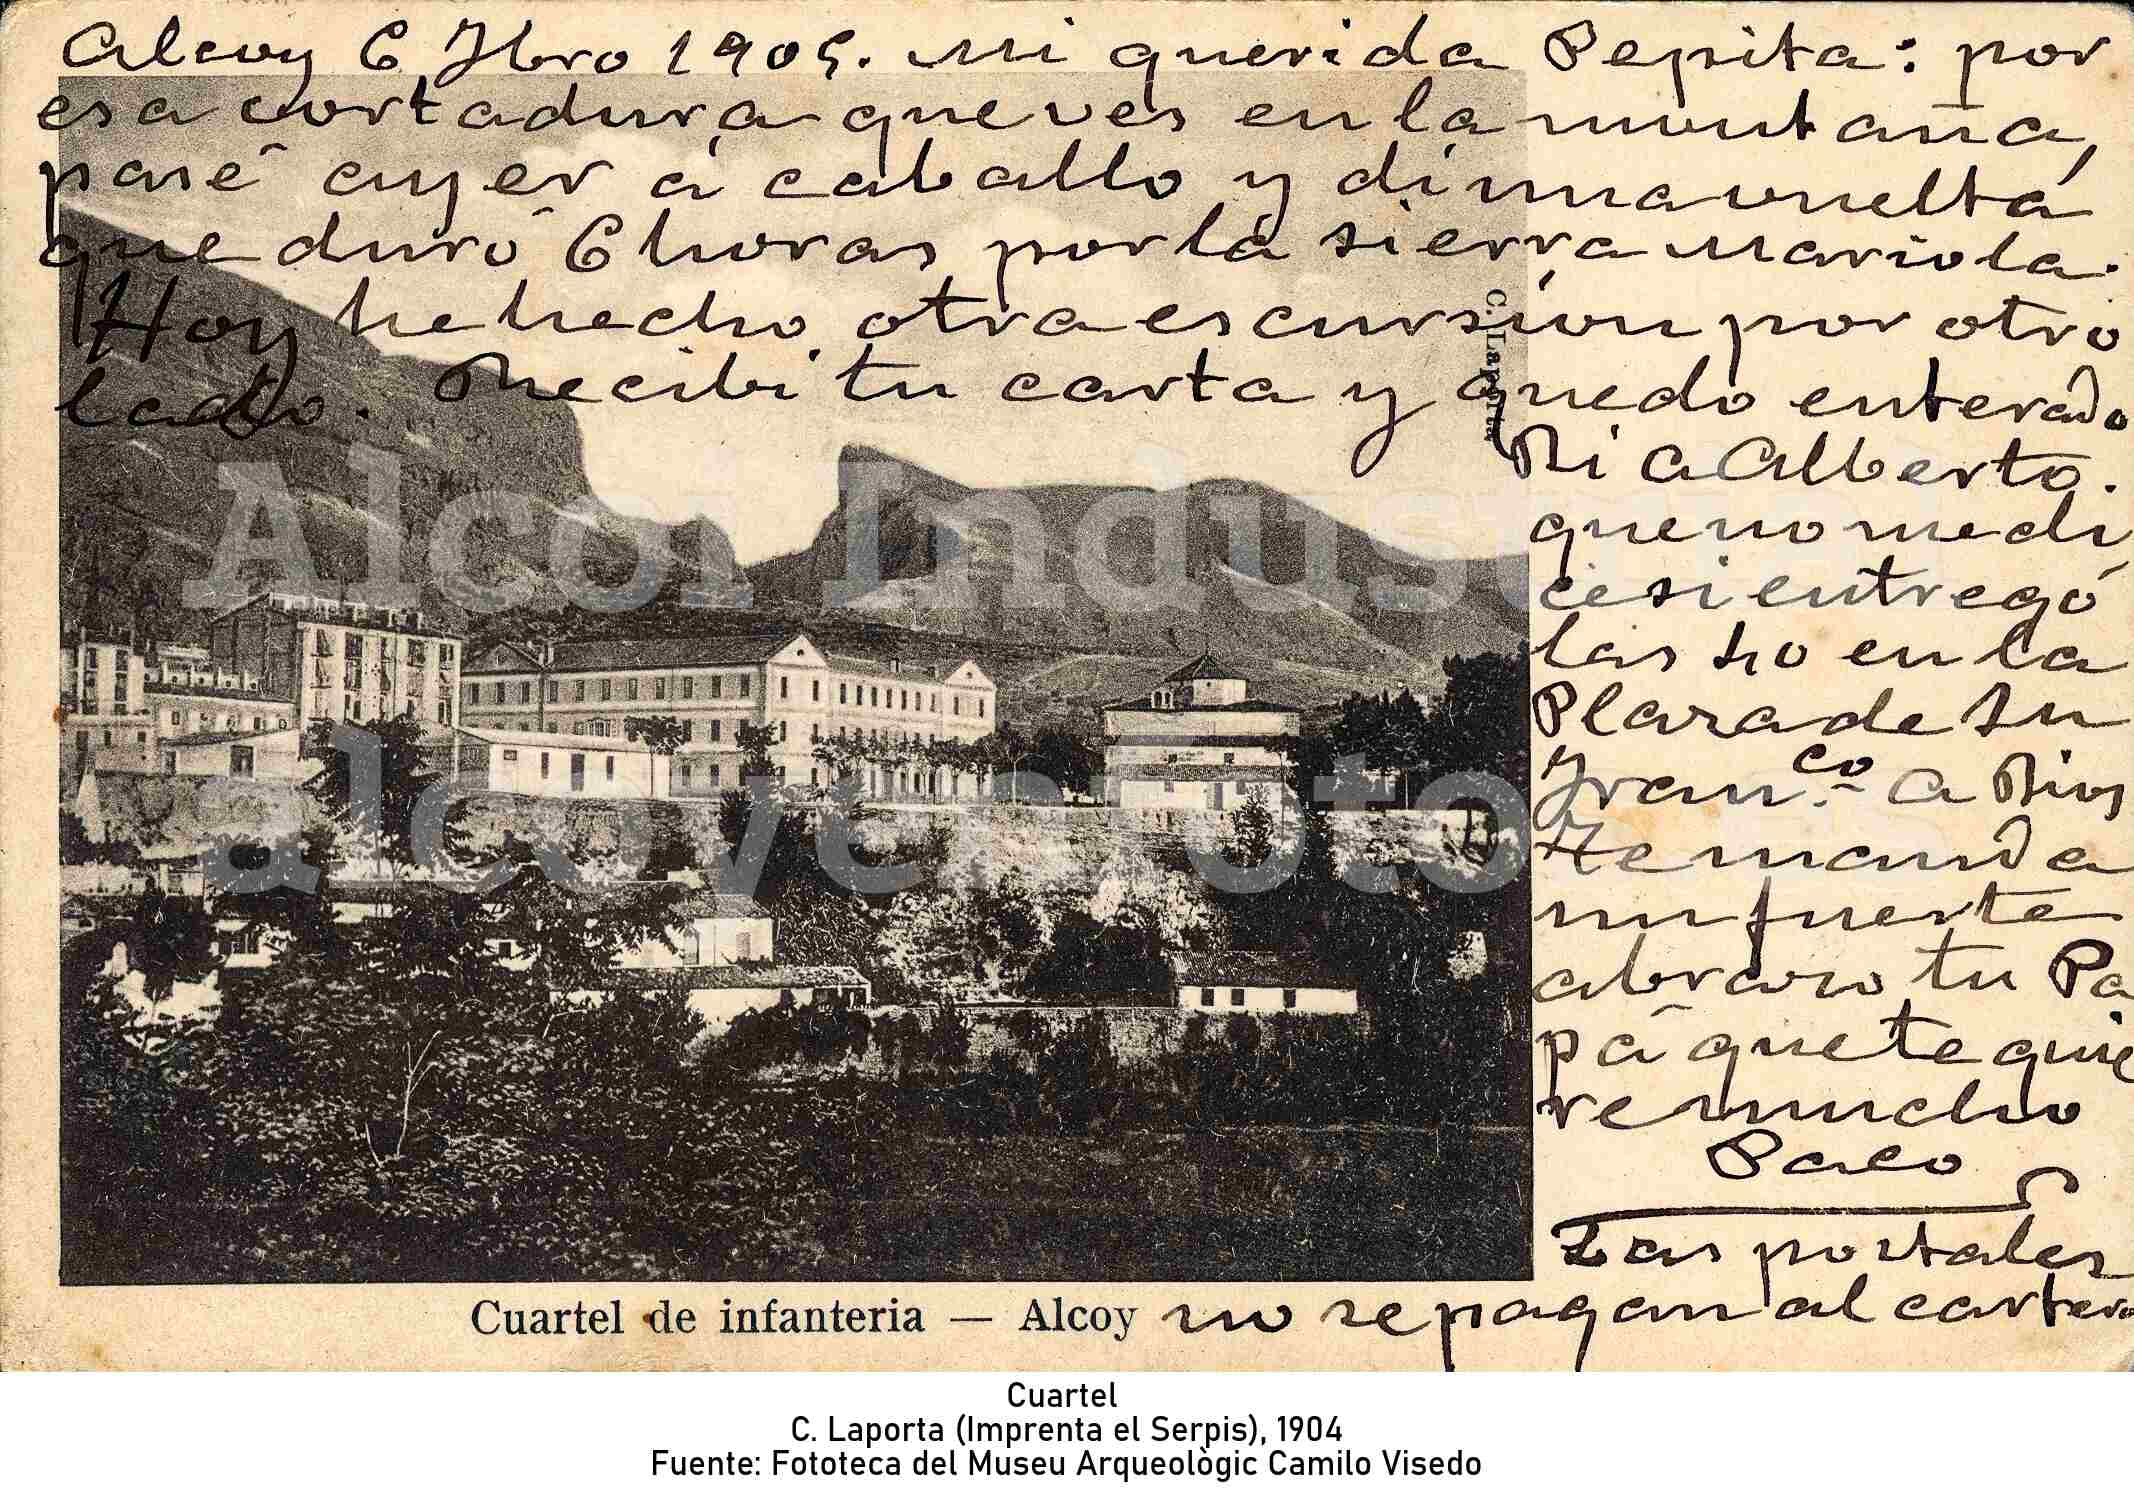 Alcoy 6 Fbro 1905. Mi querida Pepita: por
esa cortadura que ves en la montaña,
pasé ayer á caballo y di una vuelta
que duró 6 horas por la sierra Mariola.
Hoy he hecho otra escursion por otro
lado. Recibi tu carta y quedo enterado
Di a Alberto.
que no me di
ce si entregó
las 40 en la
Plaza de Sn
Franco a Rius
Te manda
un fuerte
abrazo tu Pa
pá que te quie
re mucho
Paco
Las postales
no se pagan al cartero
C. Laporta
Alcoi Industr
alcoyenfoto
Cuartel de infanteria — Alcoy
Cuartel
C. Laporta (Imprenta el Serpis), 1904
Fuente: Fototeca del Museu Arqueològic Camilo Visedo